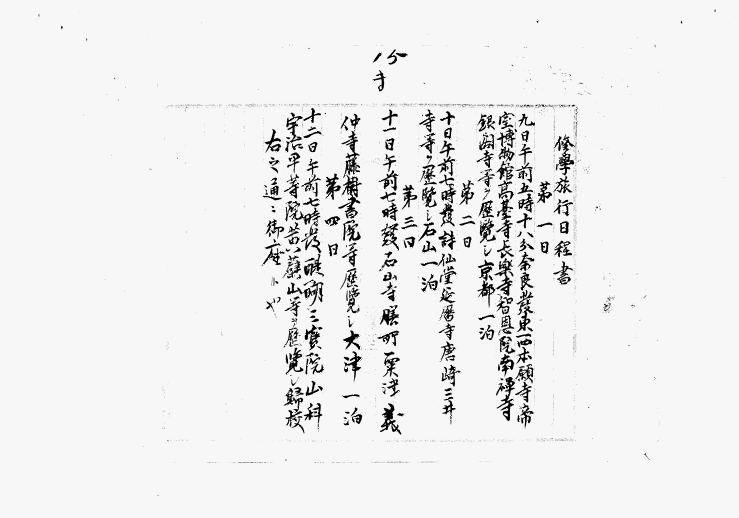 修學旅行日程書
第一日
九日午前五時十八分奈良發東西本願寺帝
室博物館高臺寺長樂寺智恩院南禪寺
銀閣寺等ヲ歷覽シ京都一泊
第二日
十日午前七時發詩仙堂延曆寺唐崎三井
寺等ヲ歷覽シ石山一泊
第三日
十一日午前七時發石山寺膳所粟津義
仲寺藤樹書院等歷覽シ大津一泊
第四日
十二日午前七時發醍醐三寶院山科
宇治平等院黃蘗山等ヲ歷覽シ歸校
右之通ニ御座